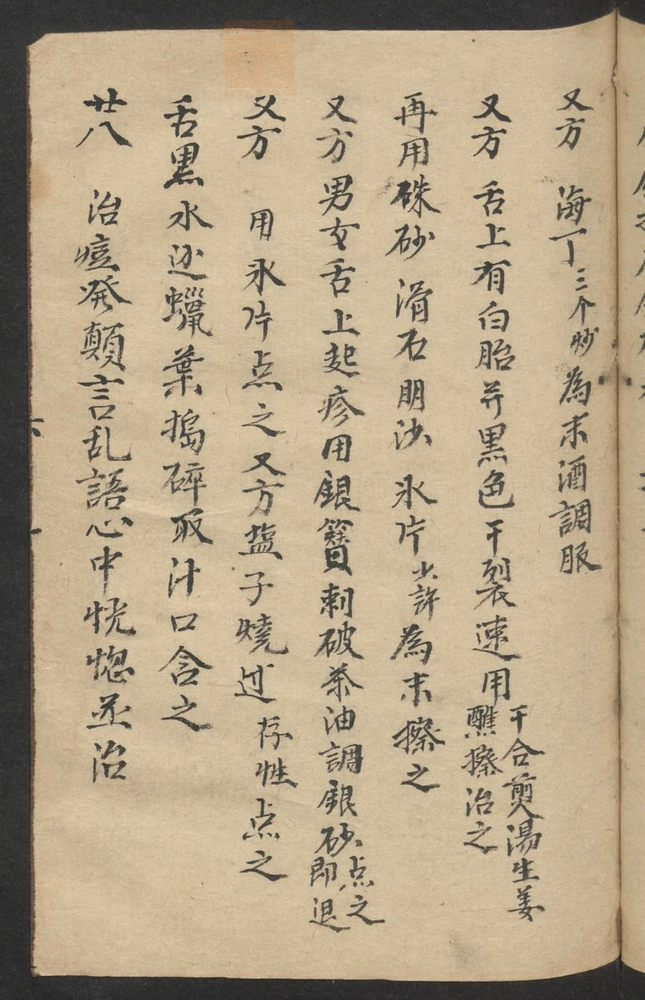 又方 海丁三个炒為末酒調服
又方 舌上有白胎并黑色干裂速用干合煎湯生姜醮擦治之
再用硃砂 滑石 朋沙 氷片少許為末擦之
又方男女舌上起疹用銀簪刺破茶油調銀砂点之即退
又方 用氷片点之又方塩子燒过存性点之
舌黒水 蠟葉搗碎取汁口含之
廿八 治痘発顛言乱語心中恍惚並治